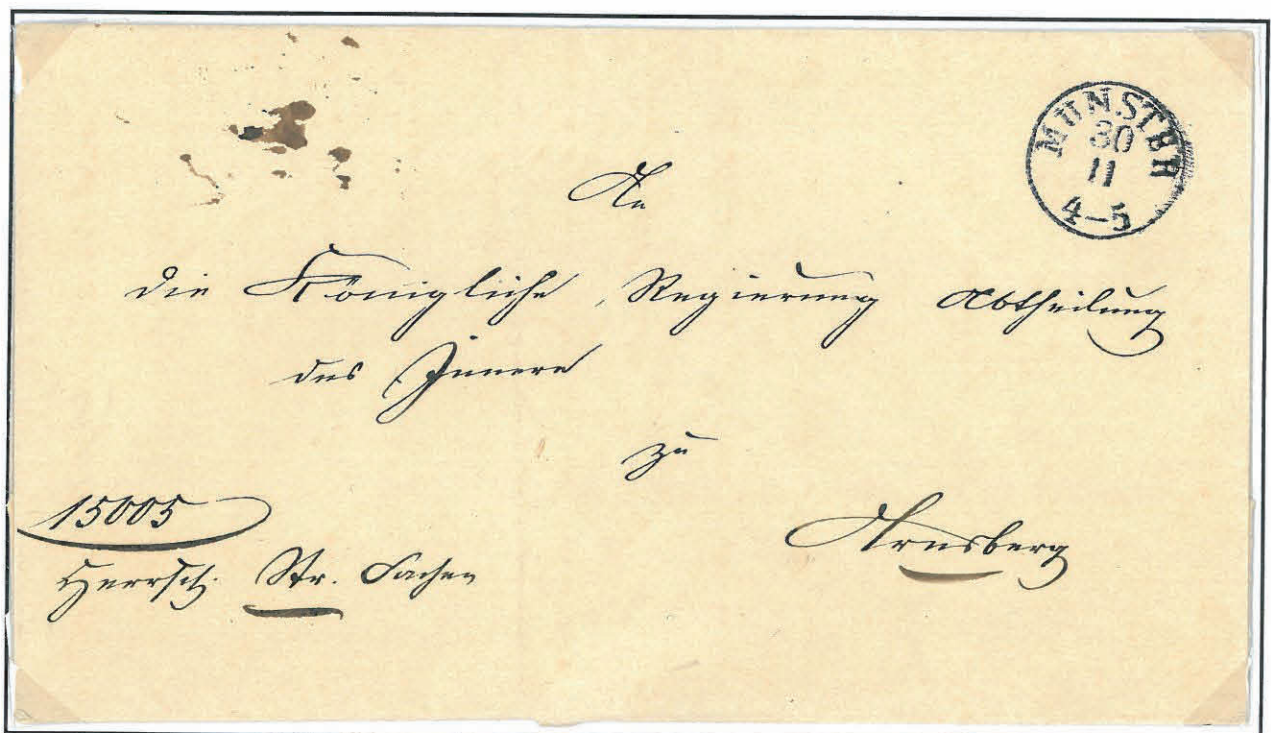 MÜNSTER
30
11
4-5
An
die Königliche Regierung Abtheilung
des Innern
zu
Arnsberg
15005
Herrsch. Str. Sachen